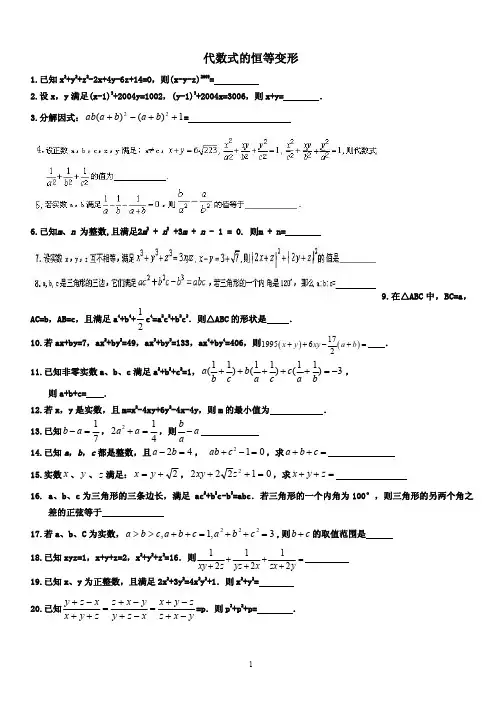 代数式的恒等变形
1.已知x²+y²+z²-2x+4y-6z+14=0，则(x-y-z)²⁰⁰²=
2.设x，y满足(x-1)³+2004y=1002，(y-1)³+2004x=3006，则x+y= ．
3.分解因式：ab(a+b)²-(a+b)²+1=
4.设正数a、b、c、x、y满足：a≠c，x+y=6√223，x²/a²+xy/b²+y²/c²=1，x²/c²+xy/b²+y²/a²=1，则代数式
1/a²+1/b²+1/c²的值为 ．
5.若实数a，b满足1/a-1/b-1/(a+b)=0，则b/a²-a/b²的值等于 ．
6.已知m、n 为整数,且满足2m² + n² +3m + n - 1 = 0．则m + n=
7.设实数x，y，z互不相等，满足x³+y³+z³=3xyz，x-y=3+√7，则(2x+z)²+(2y+z)²的值是
8.a,b,c是三角形的三边，它们满足ac²+b²c-b³=abc，若三角形的一个内角是120°，那么a:b:c=
9.在△ABC中，BC=a，
AC=b，AB=c，且满足a⁴+b⁴+1/2c⁴=a²c²+b²c²．则△ABC的形状是 ．
10.若ax+by=7，ax²+by²=49，ax³+by³=133，ax⁴+by⁴=406，则1995(x+y)+6xy-17/2(a+b)= ．
11.已知非零实数a、b、c满足a²+b²+c²=1，a(1/b+1/c)+b(1/a+1/c)+c(1/a+1/b)=-3，
则a+b+c= ．
12.若x，y是实数，且m=x²-4xy+6y²-4x-4y，则m的最小值为 ．
13.已知b-a=1/7，2a²+a=1/4，则b/a-a
14.已知a，b，c都是整数，且a-2b=4， ab+c²-1=0，求a+b+c=
15.实数x、y、z满足：x=y+√2，2xy+2√2z²+1=0，求x+y+z=
16. a、b、c为三角形的三条边长，满足ac²+b²c-b³=abc．若三角形的一个内角为100°，则三角形的另两个角之
差的正弦等于
17.若a、b、C为实数，a>b>c,a+b+c=1,a²+b²+c²=3,则b+c的取值范围是
18.已知xyz=1，x+y+z=2，x²+y²+z²=16．则1/(xy+2z)+1/(yz+2x)+1/(zx+2y)=
19.已知x、y为正整数，且满足2x²+3y²=4x²y²+1．则x²+y²=
20.已知(y+z-x)/(x+y+z)=(z+x-y)/(y+z-x)=(x+y-z)/(z+x-y)=p．则p³+p²+p= ．
1